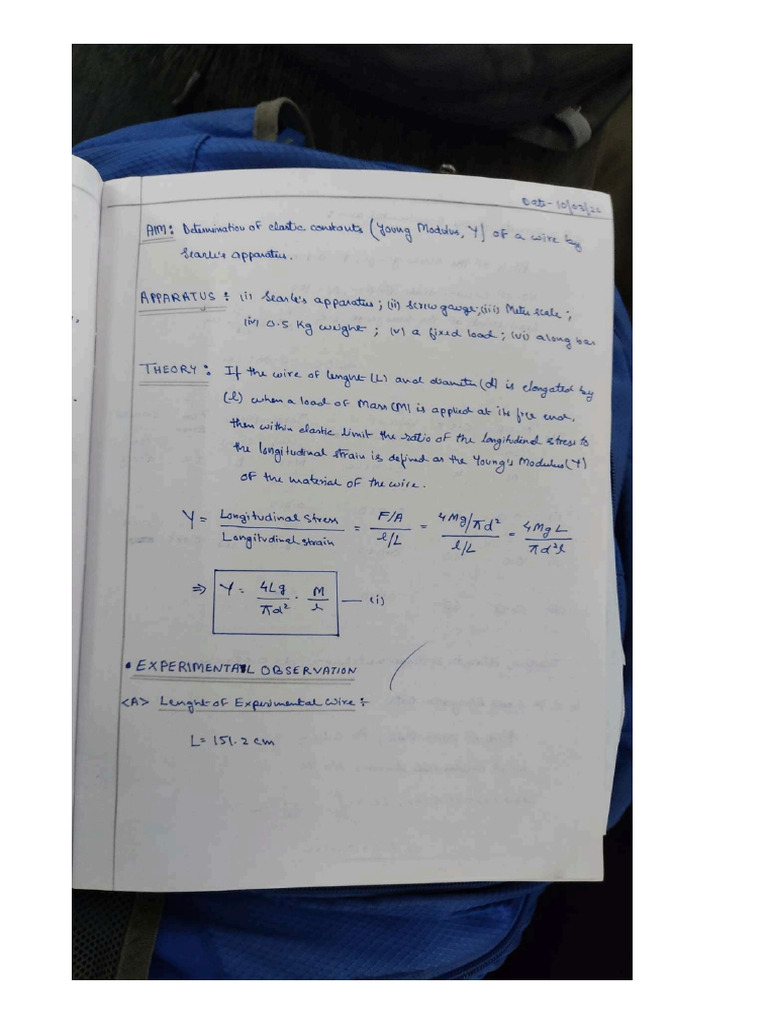 Date - 10/03/22
AIM: Determination of elastic constants (Young Modulus, Y) of a wire by
Searle's apparatus.
APPARATUS: (i) Searle's apparatus; (ii) screw gauge; (iii) Meter scale;
(iv) 0.5 Kg weight; (v) a fixed load; (vi) along bar
THEORY: If the wire of lenght (L) and diameter (d) is elongated by
(l) when a load of Mass (M) is applied at its free end,
then within elastic limit the ratio of the longitudinal stress to
the longitudinal strain is defined as the Young's Modulus (Y)
of the material of the wire.
Y = Longitudinal Stress / Longitudinal strain = F/A / l/L = 4Mg/πd² / l/L = 4MgL / πd²l
⇒ Y = 4Lg / πd² · M / l — (i)
• EXPERIMENTAL OBSERVATION
<A> Lenght of Experimental wire:-
L = 151.2 cm